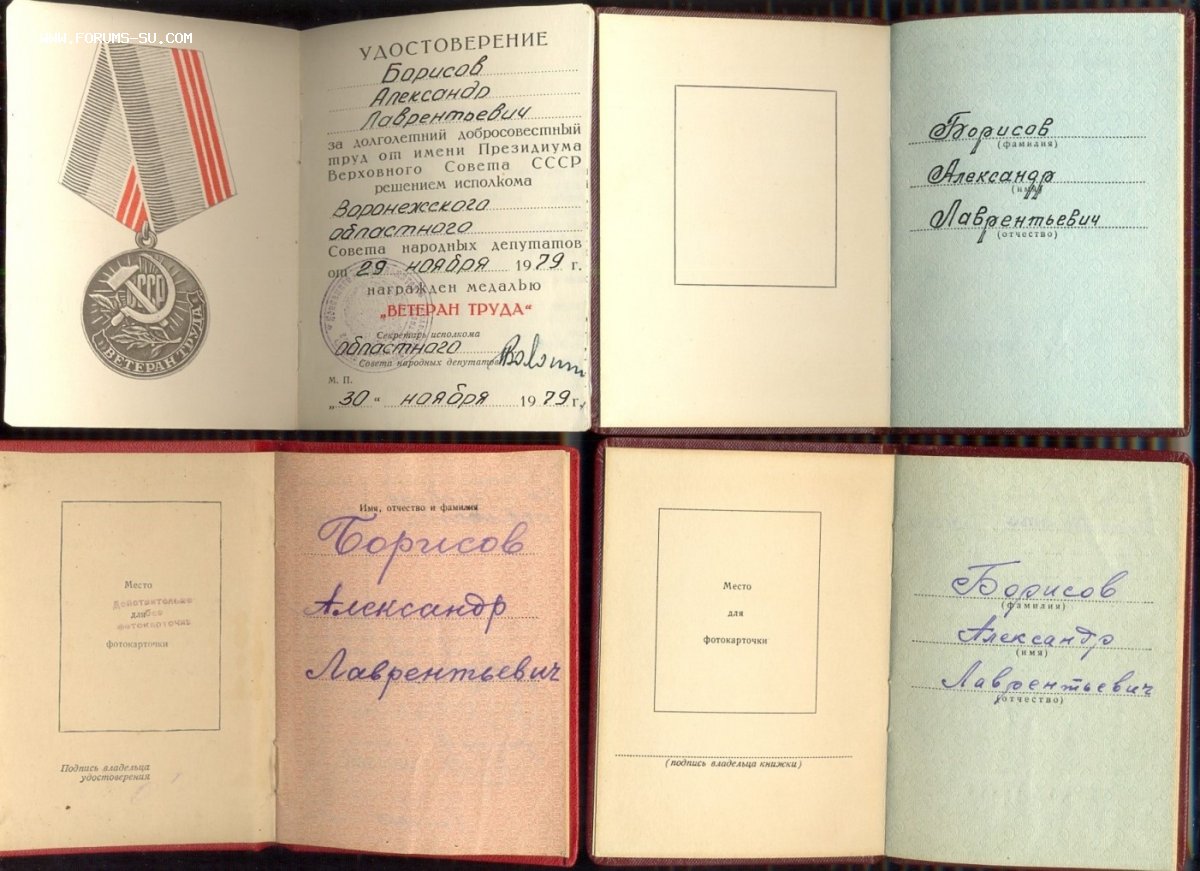 WWW.FORUMS-SU.COM
СССР
ВЕТЕРАН ТРУДА
УДОСТОВЕРЕНИЕ
Борисов
Александр
Лаврентьевич
за долголетний добросовестный
труд от имени Президиума
Верховного Совета СССР
решением исполкома
Воронежского
областного
Совета народных депутатов
от 29 ноября 1979 г.
награжден медалью
„ВЕТЕРАН ТРУДА“
Секретарь исполкома
областного
Совета народных депутатов
М. П.
„30“ ноября 1979 г.
Борисов
(фамилия)
Александр
(имя)
Лаврентьевич
(отчество)
Место
для
фотокарточки
Действительно
без
фотокарточки
Подпись владельца
удостоверения
Имя, отчество и фамилия
Борисов
Александр
Лаврентьевич
Место
для
фотокарточки
(подпись владельца книжки)
Борисов
(фамилия)
Александр
(имя)
Лаврентьевич
(отчество)